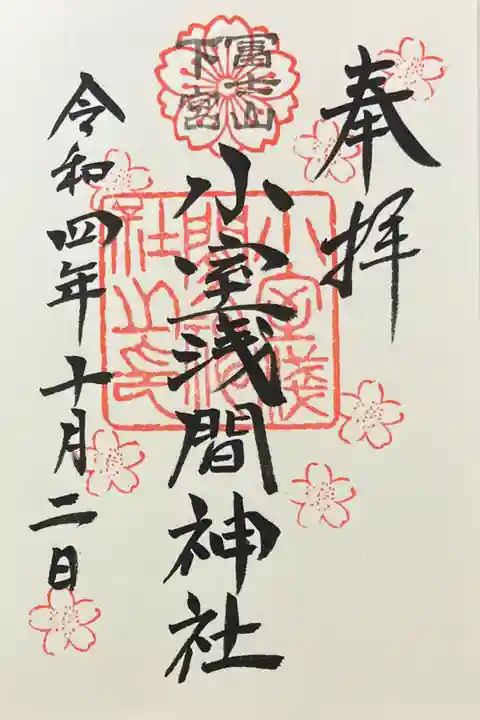 奉拝
冨士山
下宮
小室浅間神社
小室浅
間神
社之印
令和四年十月二日